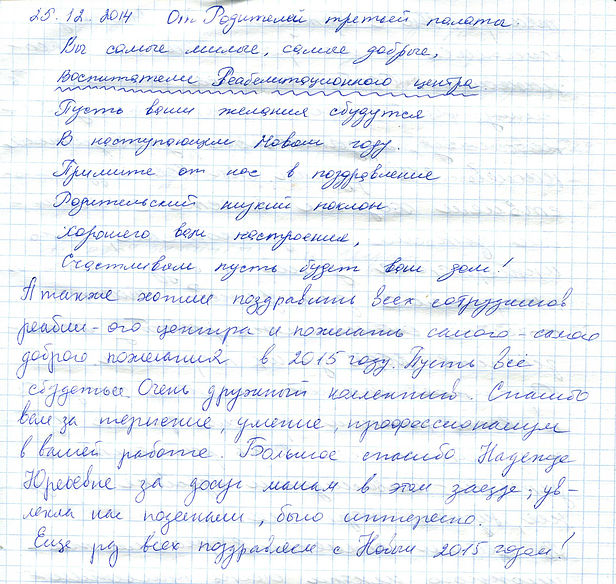 25.12.2014 От Родителей третьей палаты.
Вы самые милые, самые добрые,
Воспитатели Реабелитационного центра
Пусть ваши желания сбудутся
В наступающем Новом году.
Примите от нас в поздравление
Родительский низкий поклон.
Хорошего вам настроения,
Счастливым пусть будет ваш дом!
А также хотим поздравить всех сотрудников
реабили-ого центра и пожелать самого-самого
доброго пожелания в 2015 году. Пусть все
сбудеться. Очень дружный коллектив. Спасибо
вам за терпение, умение, профессионализм
в вашей работе. Большое спасибо Надежде
Юрьевне за досуг мамам в этом заезде; ув-
лекла нас поделками, было интересно.
Еще раз всех поздравляем с Новым 2015 годом!